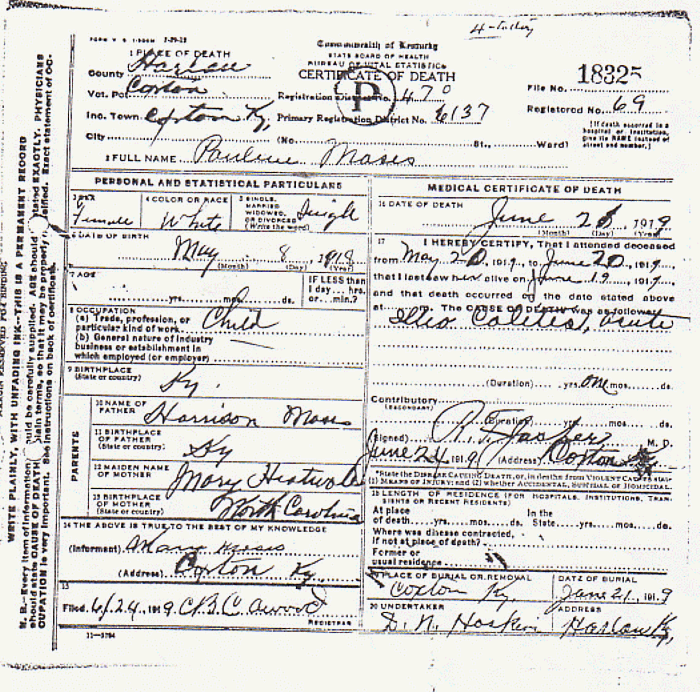 FORM V. S. 1-
1 PLACE OF DEATH
County Harlan
Vot. Pct. Coxton
Inc. Town Coxton Ky,
City (No. St., Ward)
Commonwealth of Kentucky
STATE BOARD OF HEALTH
BUREAU OF VITAL STATISTICS
CERTIFICATE OF DEATH
P
Registration District No. 470
Primary Registration District No. 6137
File No. 18325
Registered No. 69
[If death occurred in a
hospital or institution,
give its NAME instead of
street and number.]
2 FULL NAME Pauline Moses
PERSONAL AND STATISTICAL PARTICULARS
3 SEX
Female
4 COLOR OR RACE
White
5 SINGLE,
MARRIED
WIDOWED,
OR DIVORCED
(Write the word)
Single
6 DATE OF BIRTH
May 8, 1918
(Month) (Day) (Year)
7 AGE
yrs. mos. ds.
IF LESS than
1 day... hrs.
or... min.?
8 OCCUPATION
(a) Trade, profession, or
particular kind of work. Child
(b) General nature of industry
business or establishment in
which employed (or employer)
9 BIRTHPLACE
(State or country) Ky.
PARENTS
10 NAME OF
FATHER Harrison Moses
11 BIRTHPLACE
OF FATHER
(State or country) Ky
12 MAIDEN NAME
OF MOTHER Mary
13 BIRTHPLACE
OF MOTHER
(State or country) North Carolina
14 THE ABOVE IS TRUE TO THE BEST OF MY KNOWLEDGE
(Informant)
(Address) Coxton Ky.
15
Filed 6/24, 1919
REGISTRAR
MEDICAL CERTIFICATE OF DEATH
16 DATE OF DEATH
June 20, 1919
(Month) (Day) (Year)
17 I HEREBY CERTIFY, That I attended deceased
from May 20, 1919, to June 20, 1919,
that I last saw her alive on June 19, 1919,
and that death occurred on the date stated above
at m. The CAUSE OF DEATH was as follows:
Ileo Colitis, acute
(Duration) yrs. one mos. ds.
Contributory
(SECONDARY)
(Duration) yrs. mos. ds.
(Signed) M. D.
June 24, 1919 (Address) Coxton Ky
*State the DISEASE CAUSING DEATH, or, in deaths from VIOLENT CAUSES state
(1) MEANS OF INJURY; and (2) whether ACCIDENTAL, SUICIDAL or HOMICIDAL.
18 LENGTH OF RESIDENCE (FOR HOSPITALS, INSTITUTIONS, TRANSIENTS OR RECENT RESIDENTS)
At place In the
of death yrs. mos. ds. State yrs. mos. ds.
Where was disease contracted,
if not at place of death?
Former or
usual residence
19 PLACE OF BURIAL OR REMOVAL
Coxton Ky.
DATE OF BURIAL
June 21, 1919
20 UNDERTAKER
D. N. Hoskins
ADDRESS
Harlan Ky,
11-3784
MARGIN RESERVED FOR BINDING
WRITE PLAINLY, WITH UNFADING INK—THIS IS A PERMANENT RECORD
N. B.—Every item of information should be carefully supplied. AGE should be stated EXACTLY. PHYSICIANS
should state CAUSE OF DEATH in plain terms, so that it may be properly classified. Exact statement of OC-
CUPATION is very important. See instructions on back of certificate.